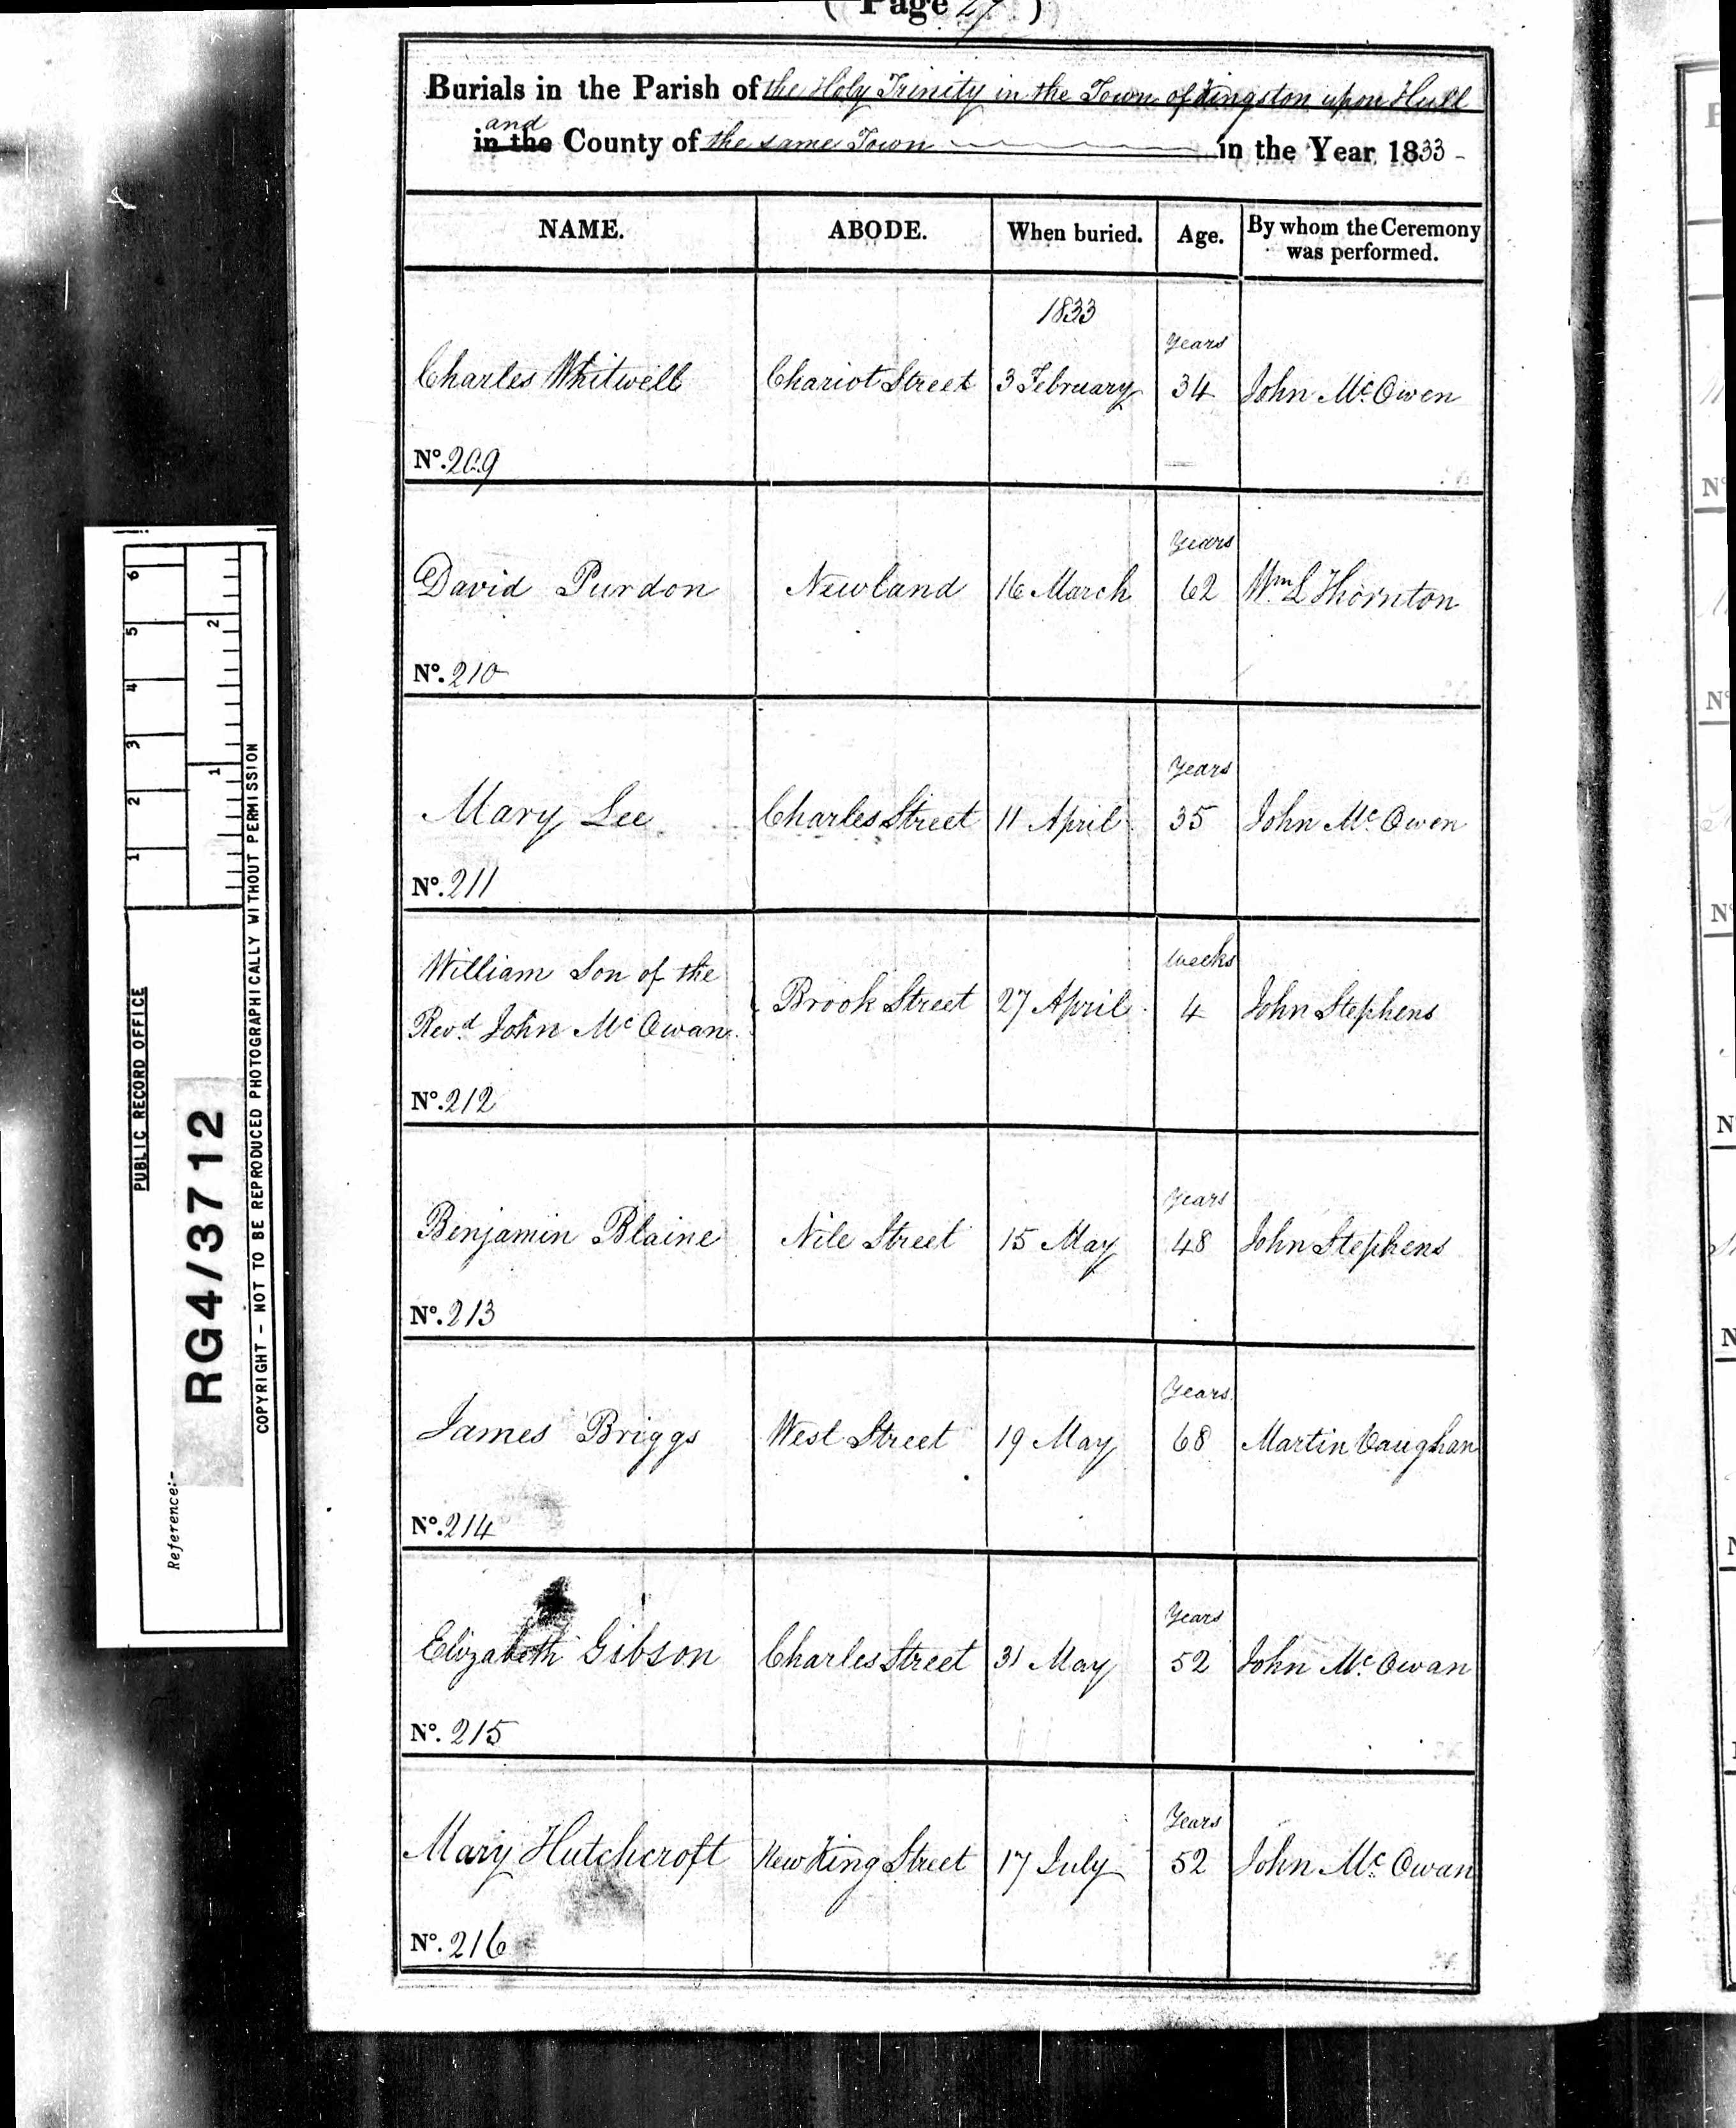 ( Page 27 )
Burials in the Parish of the Holy Trinity in the Town of Kingston upon Hull
and
in the County of the same Town in the Year 1833 -
NAME. ABODE. When buried. Age. By whom the Ceremony was performed.
1833
Years
Charles Whitwell Chariot Street 3 February 34 John Mc Owen
No. 209
Years
David Purdon Newland 16 March 62 Wm L Thornton
No. 210
Years
Mary Lee Charles Street 11 April 35 John Mc Owen
No. 211
Weeks
William Son of the
Revd. John Mc Owan Brook Street 27 April 4 John Stephens
No. 212
Years
Benjamin Blaine Nile Street 15 May 48 John Stephens
No. 213
Years
James Briggs West Street 19 May 68 Martin Vaughan
No. 214
Years
Elizabeth Gibson Charles Street 31 May 52 John Mc Owan
No. 215
Years
Mary Hutchcroft New King Street 17 July 52 John Mc Owan
No. 216
1 2 3 4 5 6
1 2
PUBLIC RECORD OFFICE
Reference:-
RG4/3712
COPYRIGHT - NOT TO BE REPRODUCED PHOTOGRAPHICALLY WITHOUT PERMISSION